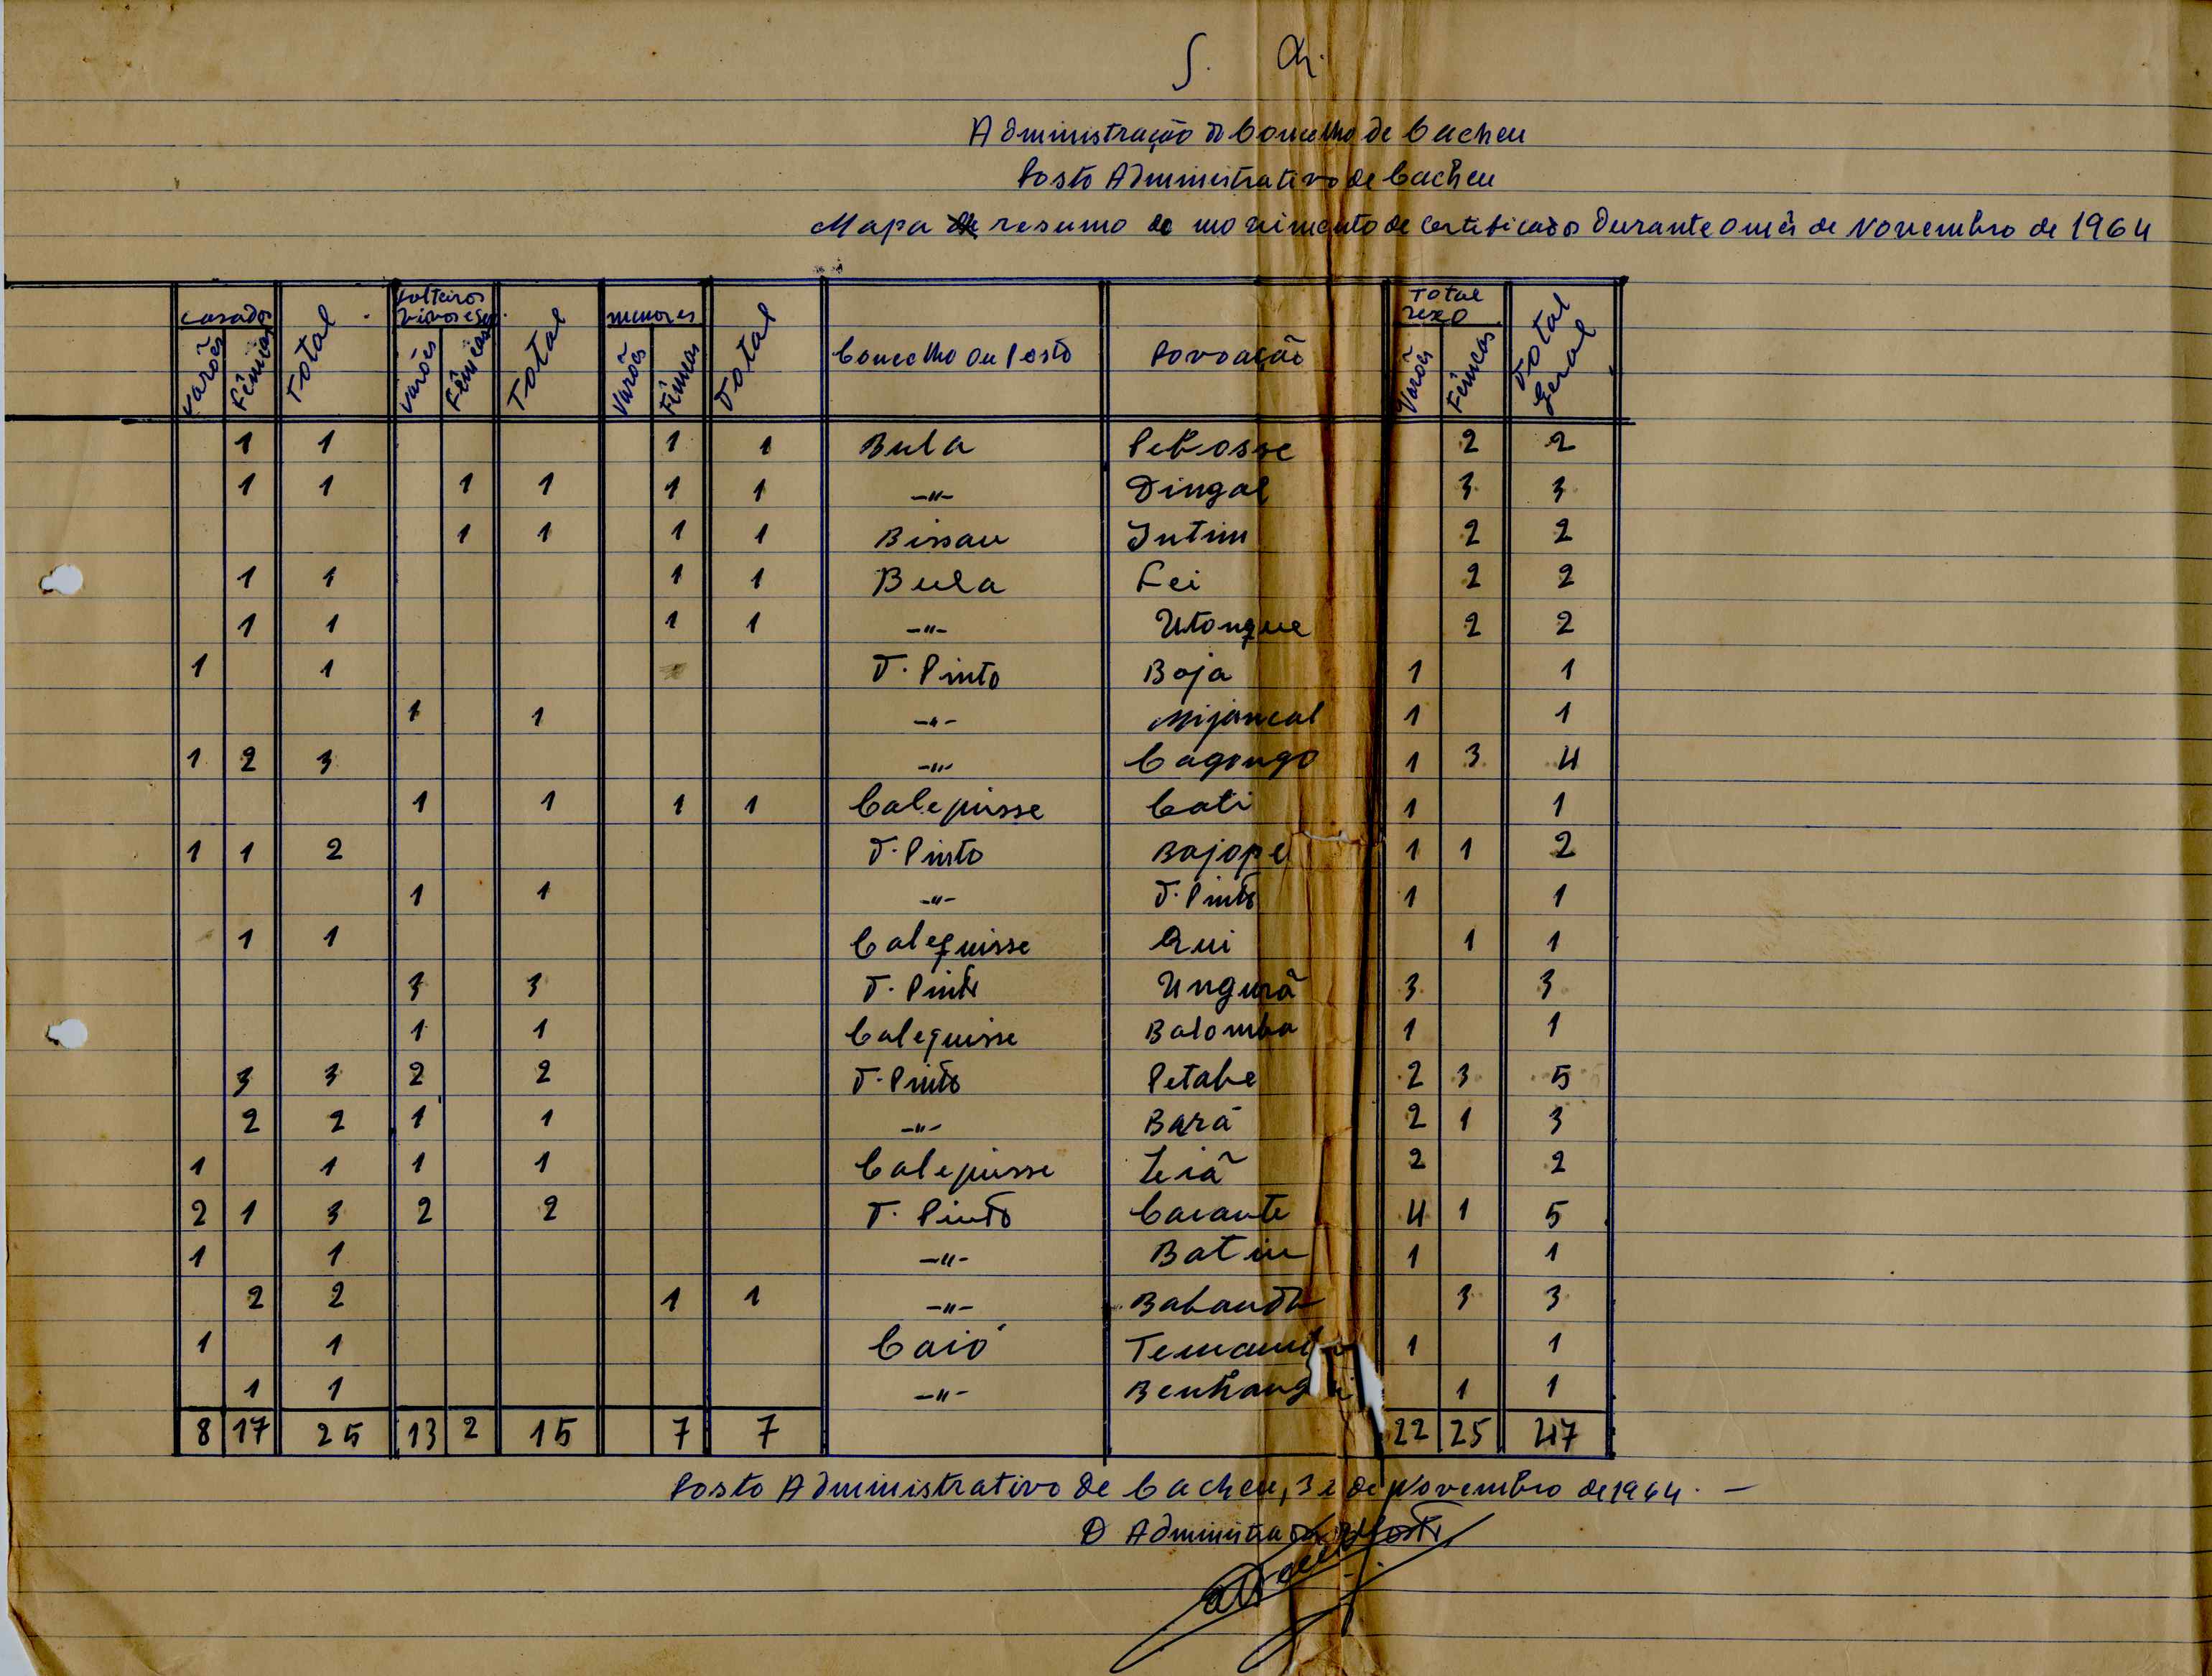 S. R.
Administração do Concelho de Cacheu
Posto Administrativo de Cacheu
Mapa de resumo do movimento de certificados durante o mês de Novembro de 1964
casados Total solteiros viuvos e sep. Total menores Total Concelho ou Posto Povoação Total sexo Total Geral
Varões Fêmeas Varões Fêmeas Varões Fêmeas Varões Fêmeas
1 1 1 1 Bula Petosse 2 2
1 1 1 1 1 1 —"— Dingal 3 3
1 1 1 1 Bissau Intim 2 2
1 1 1 1 Bula Fei 2 2
1 1 1 1 —"— Utongue 2 2
1 1 T. Pinto Boja 1 1
1 1 —"— Mijancal 1 1
1 2 3 —"— Cagongo 1 3 4
1 1 1 1 Calequisse Cati 1 1
1 1 2 T. Pinto Bajope 1 1 2
1 1 —"— T. Pinto 1 1
1 1 Calequisse Qui 1 1
3 3 T. Pinto Ungurã 3 3
1 1 Calequisse Balomba 1 1
3 3 2 2 T. Pinto Petabe 2 3 5
2 2 1 1 —"— Bará 2 1 3
1 1 1 1 Calequisse Leiã 2 2
2 1 3 2 2 T. Pinto Carante 4 1 5
1 1 —"— Batiu 1 1
2 2 1 1 —"— 3 3
1 1 Caió 1 1
1 1 —"— 1 1
8 17 25 13 2 15 7 7 22 25 47
Posto Administrativo de Cacheu, 31 de Novembro de 1964. —
O Administrador de Posto